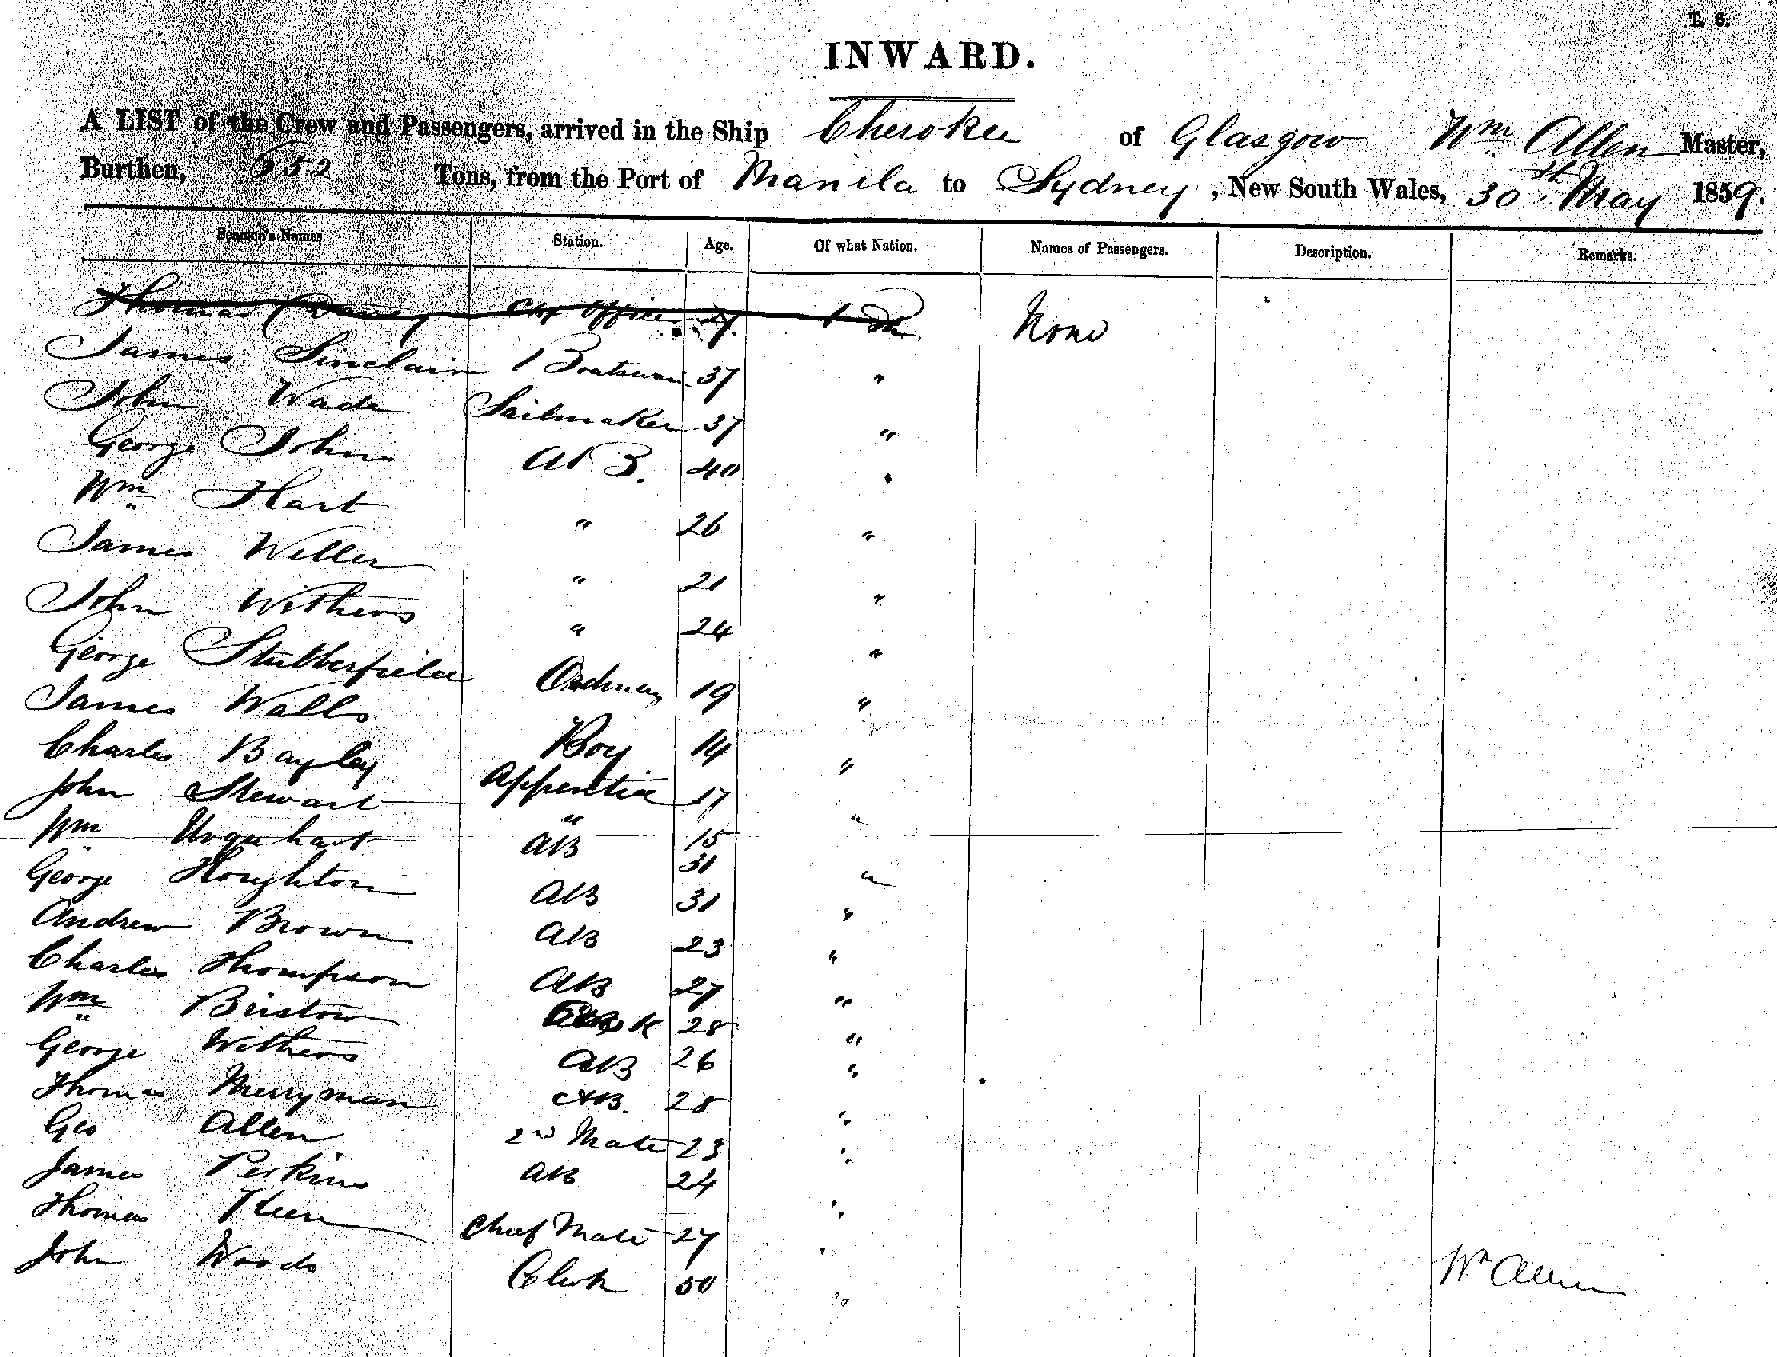 T. 6.
INWARD.
A LIST of the Crew and Passengers, arrived in the Ship Cherokee of Glasgow Wm Allen Master,
Burthen, 552 Tons, from the Port of Manila to Sydney, New South Wales, 30st May 1859.
Seamen's Names Station. Age. Of what Nation. Names of Passengers. Description. Remarks.
Thomas Chf Officer 27 None
James Sinclair Boatswan 37 "
John Wade Sailmaker 37 "
George John AB. 40 "
Wm Hart " 26 "
James Weller " 21 "
John Withers " 24 "
George Stubberfield Ordinary 19 "
James Walls Boy 14 "
Charles Bayley Apprentice 17 "
John Stewart " 15 "
Wm Urquhart AB 31 "
George Houghton AB 31 "
Andrew Brown AB 23 "
Charles Thompson AB 27 "
Wm Bristow Cook 28 "
George Withers AB 26 "
Thomas Merryman AB. 28 "
Geo Allen 2nd Mate 23 "
James Perkins AB 24 "
Thomas Keen Chief Mate 27 "
John Woods Clerk 50 "
Wm Allen